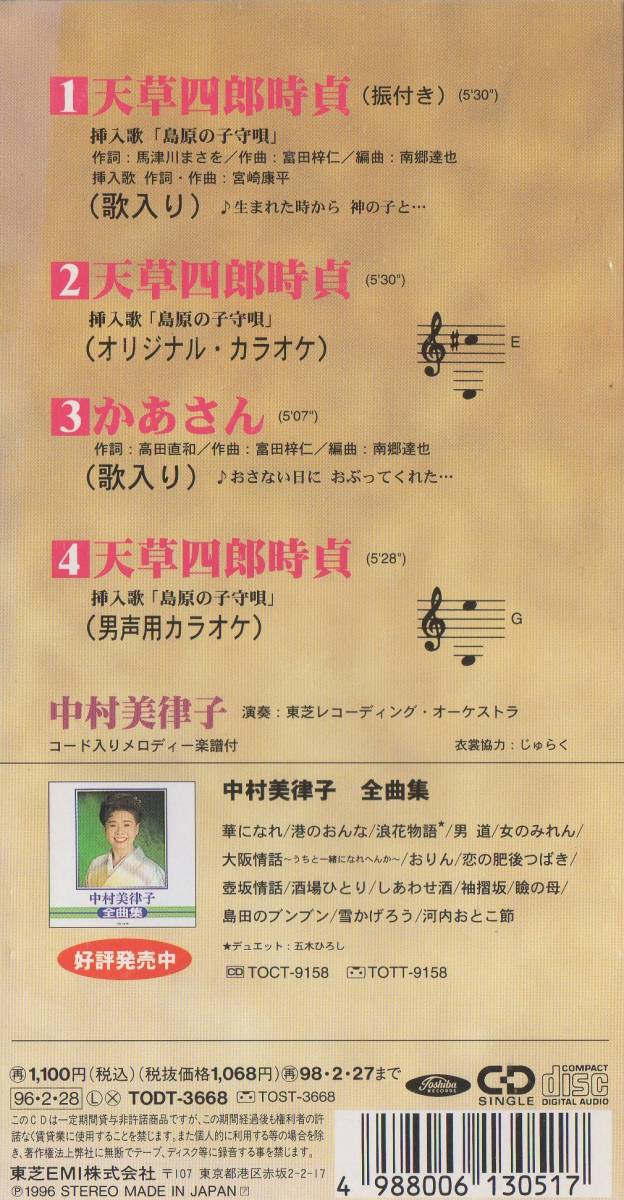 1 天草四郎時貞 (振付き) (5'30")
挿入歌「島原の子守唄」
作詞：馬津川まさを／作曲：富田梓仁／編曲：南郷達也
挿入歌 作詞・作曲：宮崎康平
(歌入り) ♪生まれた時から 神の子と…
2 天草四郎時貞 (5'30")
挿入歌「島原の子守唄」
(オリジナル・カラオケ)
E
3 かあさん (5'07")
作詞：高田直和／作曲：富田梓仁／編曲：南郷達也
(歌入り) ♪おさない日に おぶってくれた…
4 天草四郎時貞 (5'28")
挿入歌「島原の子守唄」
(男声用カラオケ)
G
中村美律子 演奏：東芝レコーディング・オーケストラ
コード入りメロディー楽譜付 衣裳協力：じゅらく
中村美律子 全曲集
華になれ/港のおんな/浪花物語★/男 道/女のみれん/
大阪情話～うちと一緒になれへんか～/おりん/恋の肥後つばき/
壺坂情話/酒場ひとり/しあわせ酒/袖摺坂/瞼の母/
島田のブンブン/雪かげろう/河内おとこ節
★デュエット：五木ひろし
CD TOCT-9158 TOTT-9158
中村美律子
全曲集
好評発売中
再1,100円(税込)(税抜価格1,068円)再98・2・27まで
96・2・28 Ⓛ TODT-3668 TOST-3668
このCDは一定期間貸与非許諾商品ですが、この期間経過後も権利者の許
諾なく賃貸業に使用することを禁じます。また個人的に利用する等の場合を除
き、著作権法上弊社に無断でテープ、ディスク等に録音する事を禁じます。
東芝EMI株式会社 〒107 東京都港区赤坂2-2-17
Ⓟ1996 STEREO MADE IN JAPAN
Toshiba
RECORDS
CD
SINGLE
COMPACT
disc
DIGITAL AUDIO
4 988006 130517